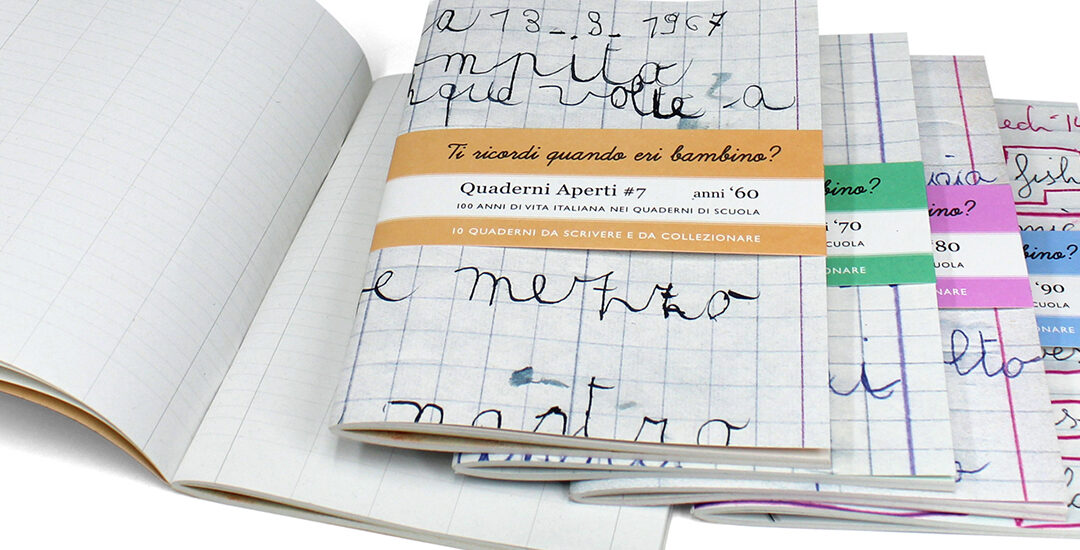 a 13-8-1967
mpita
que volte a
Ti ricordi quando eri bambino?
Quaderni Aperti #7 anni ‘60
100 ANNI DI VITA ITALIANA NEI QUADERNI DI SCUOLA
10 QUADERNI DA SCRIVERE E DA COLLEZIONARE
e mezzo
nastro
bino?
‘70
CUOLA
ONARE
ino?
‘80
UOLA
NARE
lto
edi-14
fish
bino?
‘90
CUOLA
ONARE